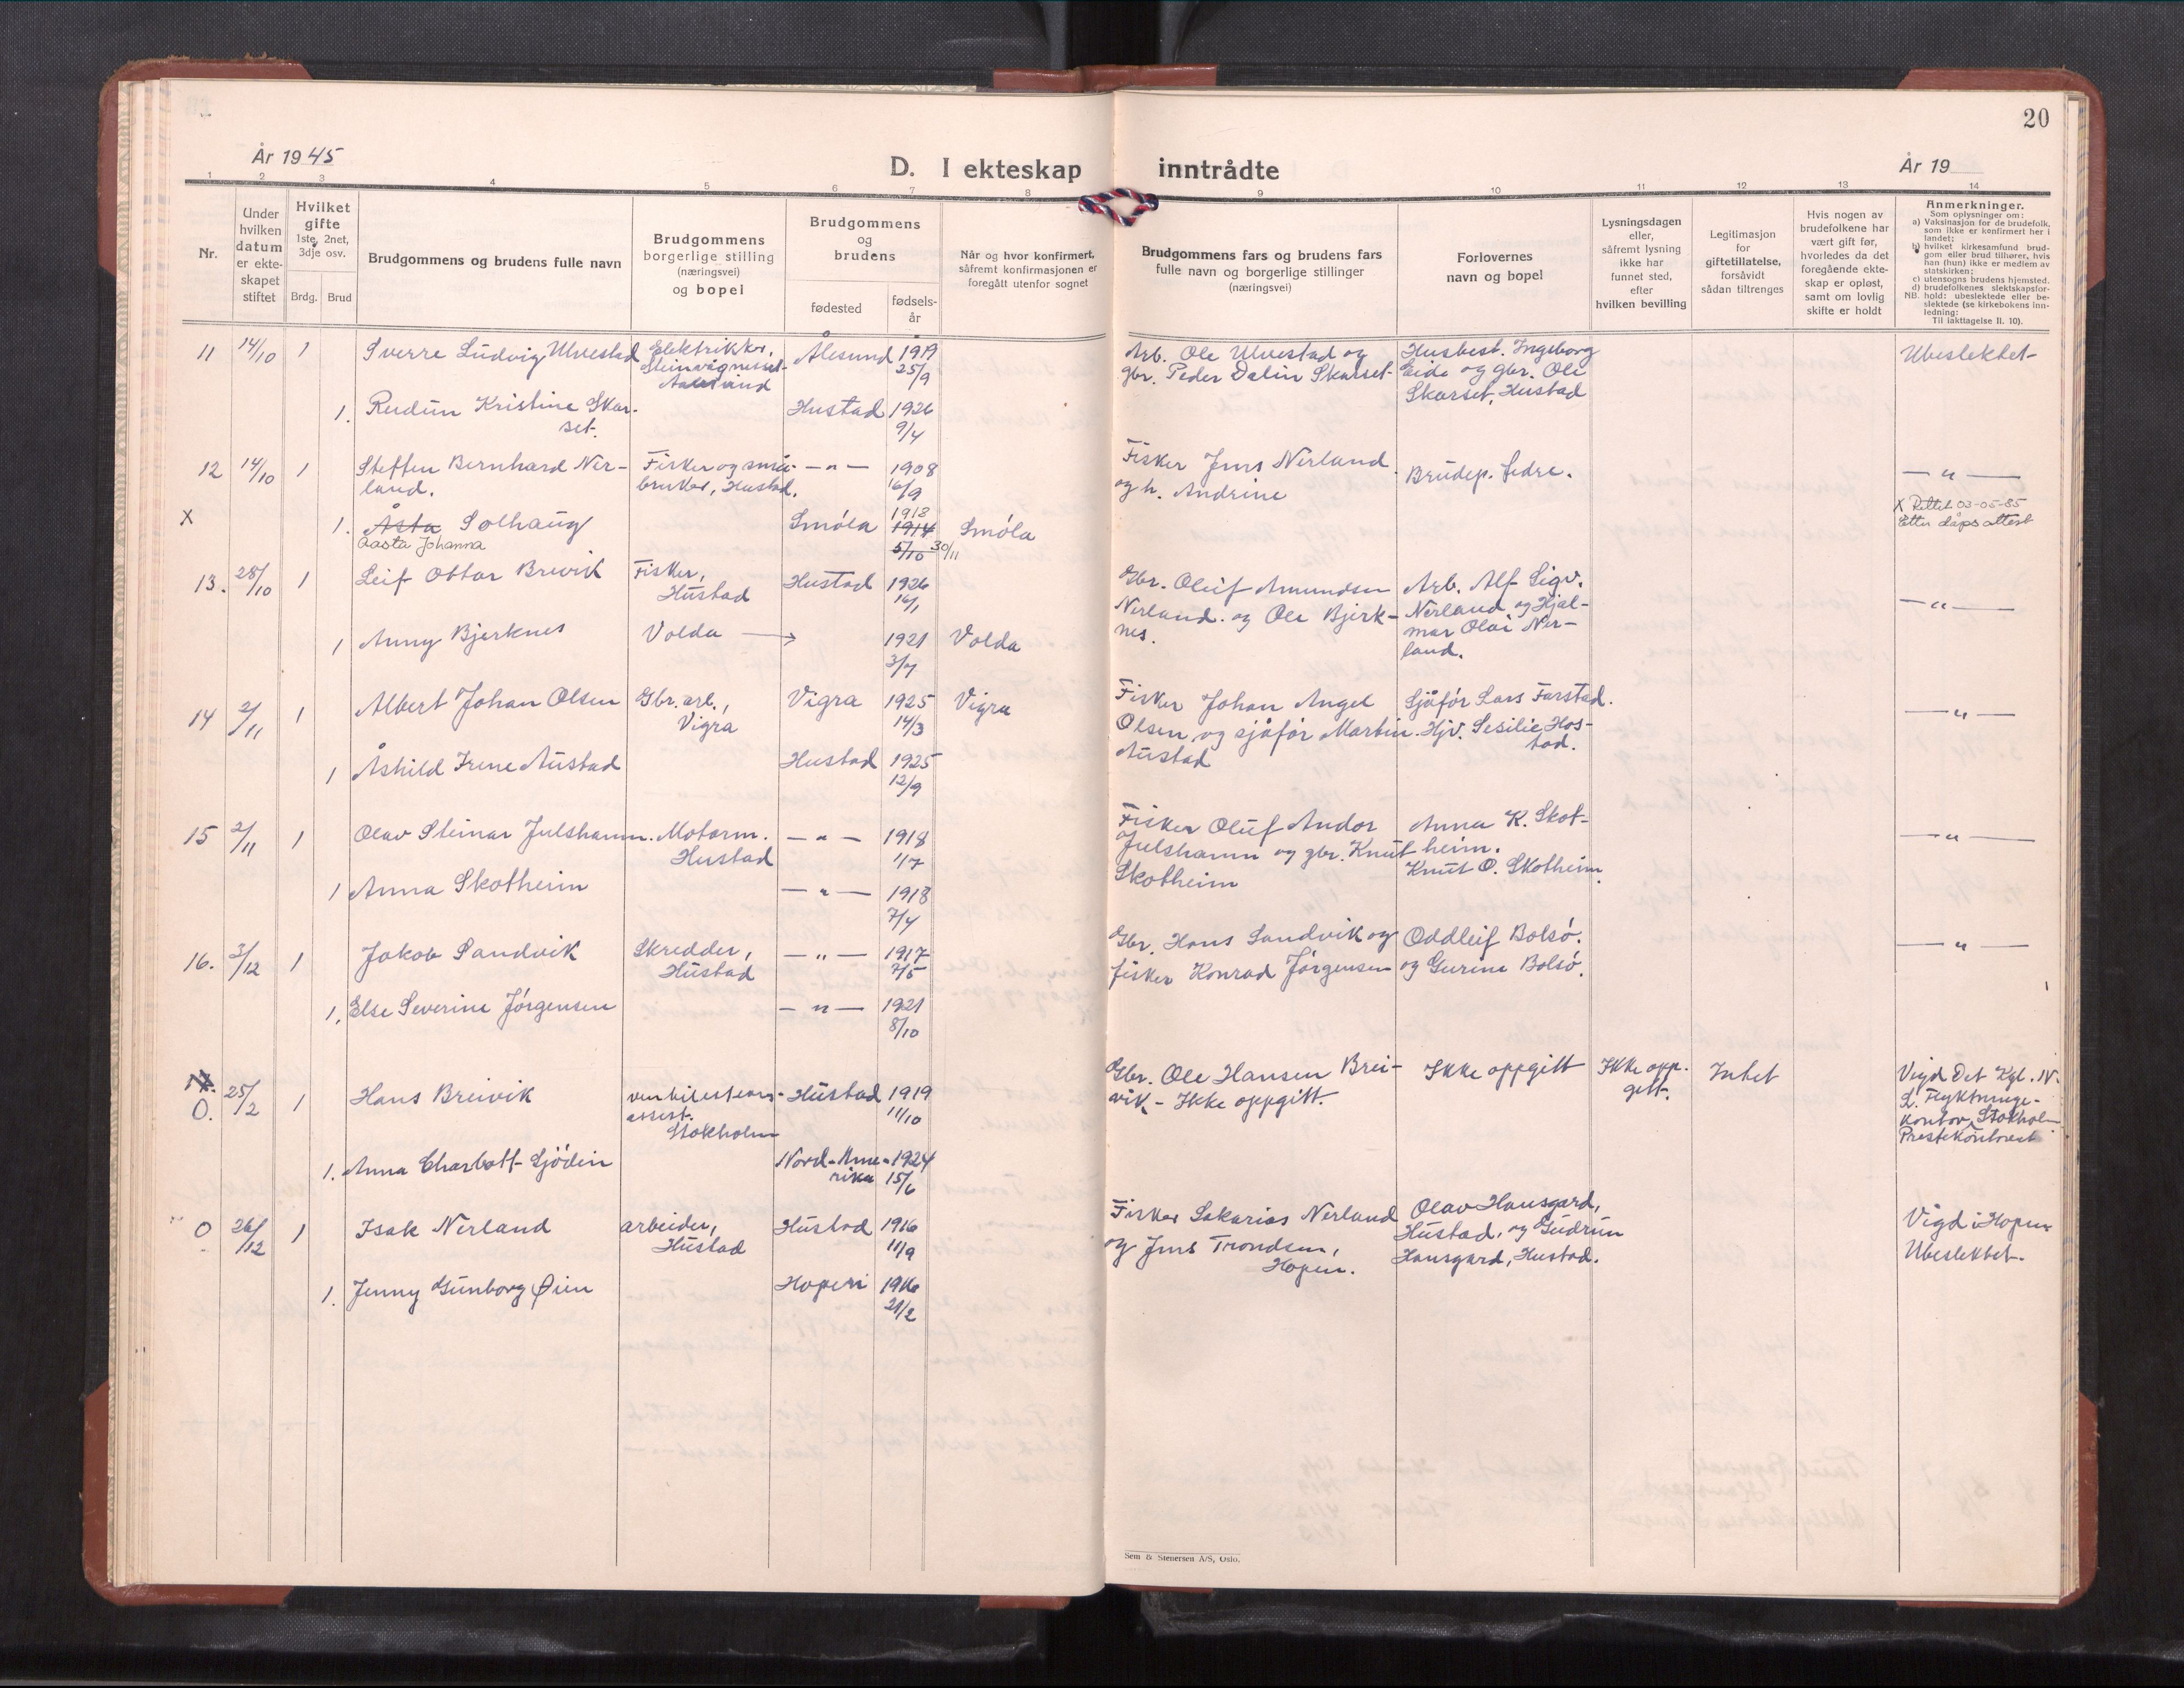 20
År 1945
D. I ekteskap inntrådte
År 19
1 2 3 4 5 6 7 8 9 10 11 12 13 14
Nr.
Under hvilken datum er ekte-skapet stiftet
Hvilket gifte
1ste, 2net, 3dje osv.
Brdg. Brud
Brudgommens og brudens fulle navn
Brudgommens borgerlige stilling (næringsvei) og bopel
Brudgommens og brudens
fødested
fødsels-år
Når og hvor konfirmert, såfremt konfirmasjonen er foregått utenfor sognet
Brudgommens fars og brudens fars fulle navn og borgerlige stillinger (næringsvei)
Forlovernes navn og bopel
Lysningsdagen eller, såfremt lysning ikke har funnet sted, efter hvilken bevilling
Legitimasjon for giftetillatelse, forsåvidt sådan tiltrenges
Hvis nogen av brudefolkene har vært gift før, hvorledes da det foregående ekte-skap er opløst, samt om lovlig skifte er holdt
Anmerkninger.
Som oplysninger om:
a) Vaksinasjon for de brudefolk, som ikke er konfirmert her i landet;
b) hvilket kirkesamfund brud-gom eller brud tilhører, hvis han (hun) ikke er medlem av statskirken;
c) utensogns brudens hjemsted.
d) brudefolkenes slektskapsfor-hold: ubeslektede eller be-slektede (se kirkebokens inn-ledning:
NB.
Til iakttagelse II. 10).
11 14/10 1 Sverre Ludvig Ulvestad Elektriker, Ålesund 1919 Arb. Ole Ulvestad og Husbest. Ingeborg Ubeslektet
Steinvågneset 25/9 gbr. Peder Dalin Skarset Eide og gbr. Ole
Aalesund Skarset, Hustad
1. Rudun Kristine Skar- Hustad 1926
set. 9/4
12 14/10 1 Steffen Bernhard Ner- Fisker og små- — " — 1908 Fisker Jens Nerland Brudep. fedre. — " —
land. bruker, Hustad. 16/9 og h. Andrine
X 1913 X Rettet 03-05-85
1. Åsta Solhaug Smóla 1914 Smóla Etter dåpsattest
Aasta Johanna 5/10 30/11
13. 28/10 1 Leif Ottar Brevik Fisker, Hustad 1926 Gbr. Oleif Amundsen Arb. Alf Sigv. — " —
Hustad 16/1 Nerland. og Ole Bjerk- Nerland og Hjal-
1 Anny Bjerknes Volda → 1921 Volda nes. mar Olai Ner-
3/7 land.
14 2/11 1 Albert Johan Olsen Gbr. arb., Vigra 1925 Vigra Fisker Johan Angel Sjåfór Lars Farstad. — " —
Vigra 14/3 Olsen og sjåfór Martin Hjv. Sesilie Hos-
1 Åshild Irene Austad Hustad 1925 Austad tad.
12/9
15 2/11 1 Olav Steinar Julshamn. Motorm. — " — 1918 Fisker Oluf Andor Anna K. Skot- — " —
Hustad 1/7 Julshamn og gbr. Knut heim.
1 Anna Skotheim — " — 1918 Skotheim Knut O. Skotheim.
7/4
16. 3/12 1 Jakob Sandvik Skredder, — " — 1917 Gbr. Hans Sandvik og Oddleif Bolsó. — " —
Hustad 7/5 fisker Konrad Jórgensen og Gurine Bolsó.
1. Else Severine Jórgensen — " — 1921
8/10
17.
O. 25/2 1 Hans Breivik Hustad 1919 Gbr. Ole Hansen Brei- Ikke oppgitt Ikke opp- Intet Vigd Det Kgl. N.
assist. 11/10 vik - Ikke oppgitt. gitt. S. Flyktninge-
Stokholm kontor, Stokholm
Prestekontoret
1. Anna Charlott Sjódin Nord-Ame- 1924
rika 15/6
O 26/12 1 Isak Nerland arbeider, Hustad 1916 Fisker Sakarias Nerland Olav Hansgard, Vigd i Hopen
Hustad 11/9 og Jens Trondsen, Hustad, og Gudrun Ubeslektet.
Hopen. Hansgard, Hustad.
1. Jenny Gunborg Øien Hopen 1916
21/2
Sem & Stenersen A/S, Oslo.